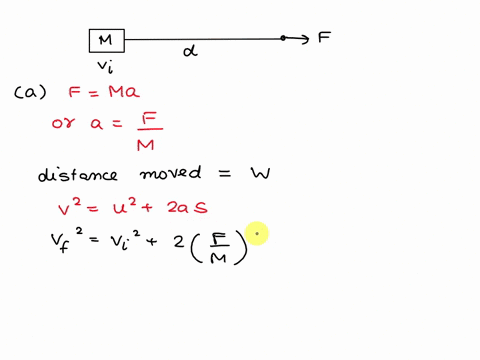 M F
d
vi
(a) F = Ma
or a = F/M
distance moved = W
v² = u² + 2as
vf² = vi² + 2(F/M)